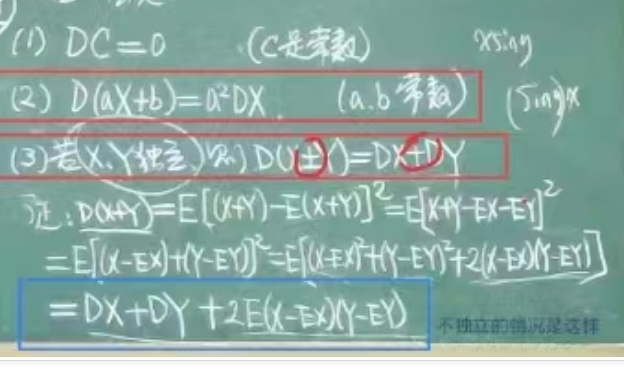 (1) DC=0 (C是常数) xsiny
(2) D(aX+b)=a²DX. (a.b常数) (Siny)x
(3)若X、Y独立、则D(X±Y)=DX+DY
证:D(X+Y)=E[(X+Y)-E(X+Y)]²=E[X+Y-EX-EY]²
=E[(X-EX)+(Y-EY)]²=E[(X-EX)²+(Y-EY)²+2(X-EX)(Y-EY)]
=DX+DY+2E(X-EX)(Y-EY)
不独立的情况是这样